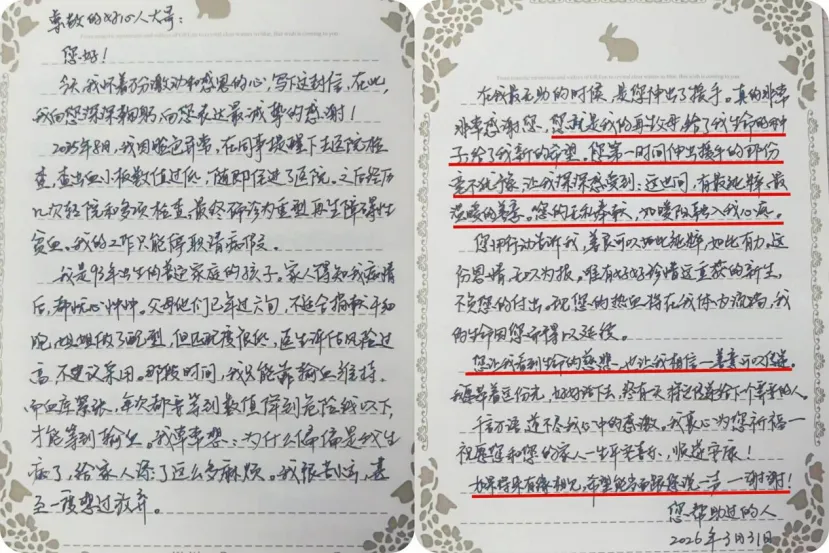 尊敬的好心人大哥:
您好!
今天我怀着万分激动和感恩的心,写下这封信,在此,
我向您深深鞠躬,向您表达最诚挚的感谢!
2025年8月,我因脸色异常,在同事提醒下去医院检
查,查出血小板数值过低,随即住进了医院。之后经历
几次住院和多项检查,最终确诊为重型再生障碍性
贫血。我的工作只能停职请病假。
我是93年出生的普通家庭的孩子。家人得知我病情
后,都忧心忡忡。父母他们已年过六旬,不适合捐献干细
胞,姐姐做了配型,但匹配度很低,医生评估风险过
高,不建议采用。那段时间,我只能靠输血维持。
而血库紧张,每次都要等到数值降到危险线以下,
才能等到输血。我常常想:为什么偏偏是我生
病了,给家人添了这么多麻烦。我很刻苦,甚
至一度想过放弃。
在我最无助的时候,是您伸出了援手。真的非常
非常感谢您,您就是我的再生父母,给了我生命的种
子,给了我新的希望。您第一时间伸出援手的那份
毫不犹豫,让我深深感受到:这世间,有最纯粹、最
温暖的善意。您的无私奉献,如暖阳融入我心底。
您用行动告诉我,善良可以如此纯粹,如此有力。这
份恩情,无以为报。唯有好好珍惜这重获的新生,
不负您的付出。现您的热血将在我体内流淌,我
的生命因您而得以延续。
您让我看到生命的慈悲,也让我相信一善意可以传递。
我愿带着这份光,好好活下去,终有一天将它传递给下个需要的人。
千言万语道不尽我心中的感激,我衷心为您祈福一
祝愿您和您的家人一生平安喜乐、顺遂安康!
如果将来有缘相见,希望能当面跟您说一声一谢谢!
您帮助过的人
2026年3月31日